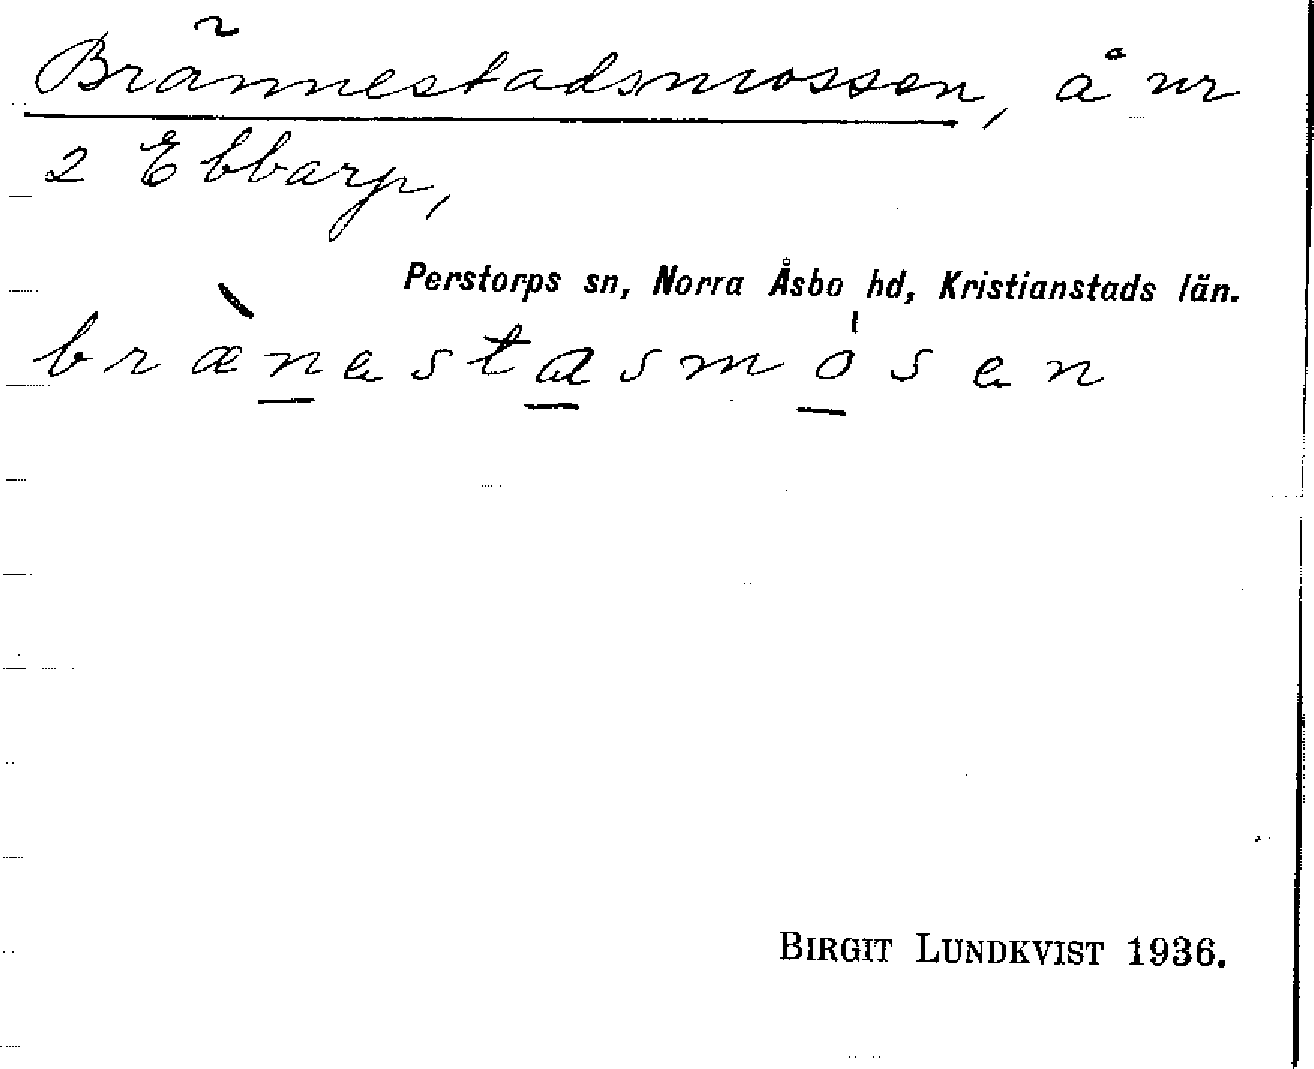 Brännestadsmossen, å nr
2 Ebbarp,
Perstorps sn, Norra Åsbo hd, Kristianstads län.
brænastasmosen
BIRGIT LUNDKVIST 1936.